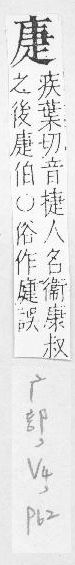 疾葉切音捷人名衞康叔
之後伯〇俗作誤
广部, V4, p62